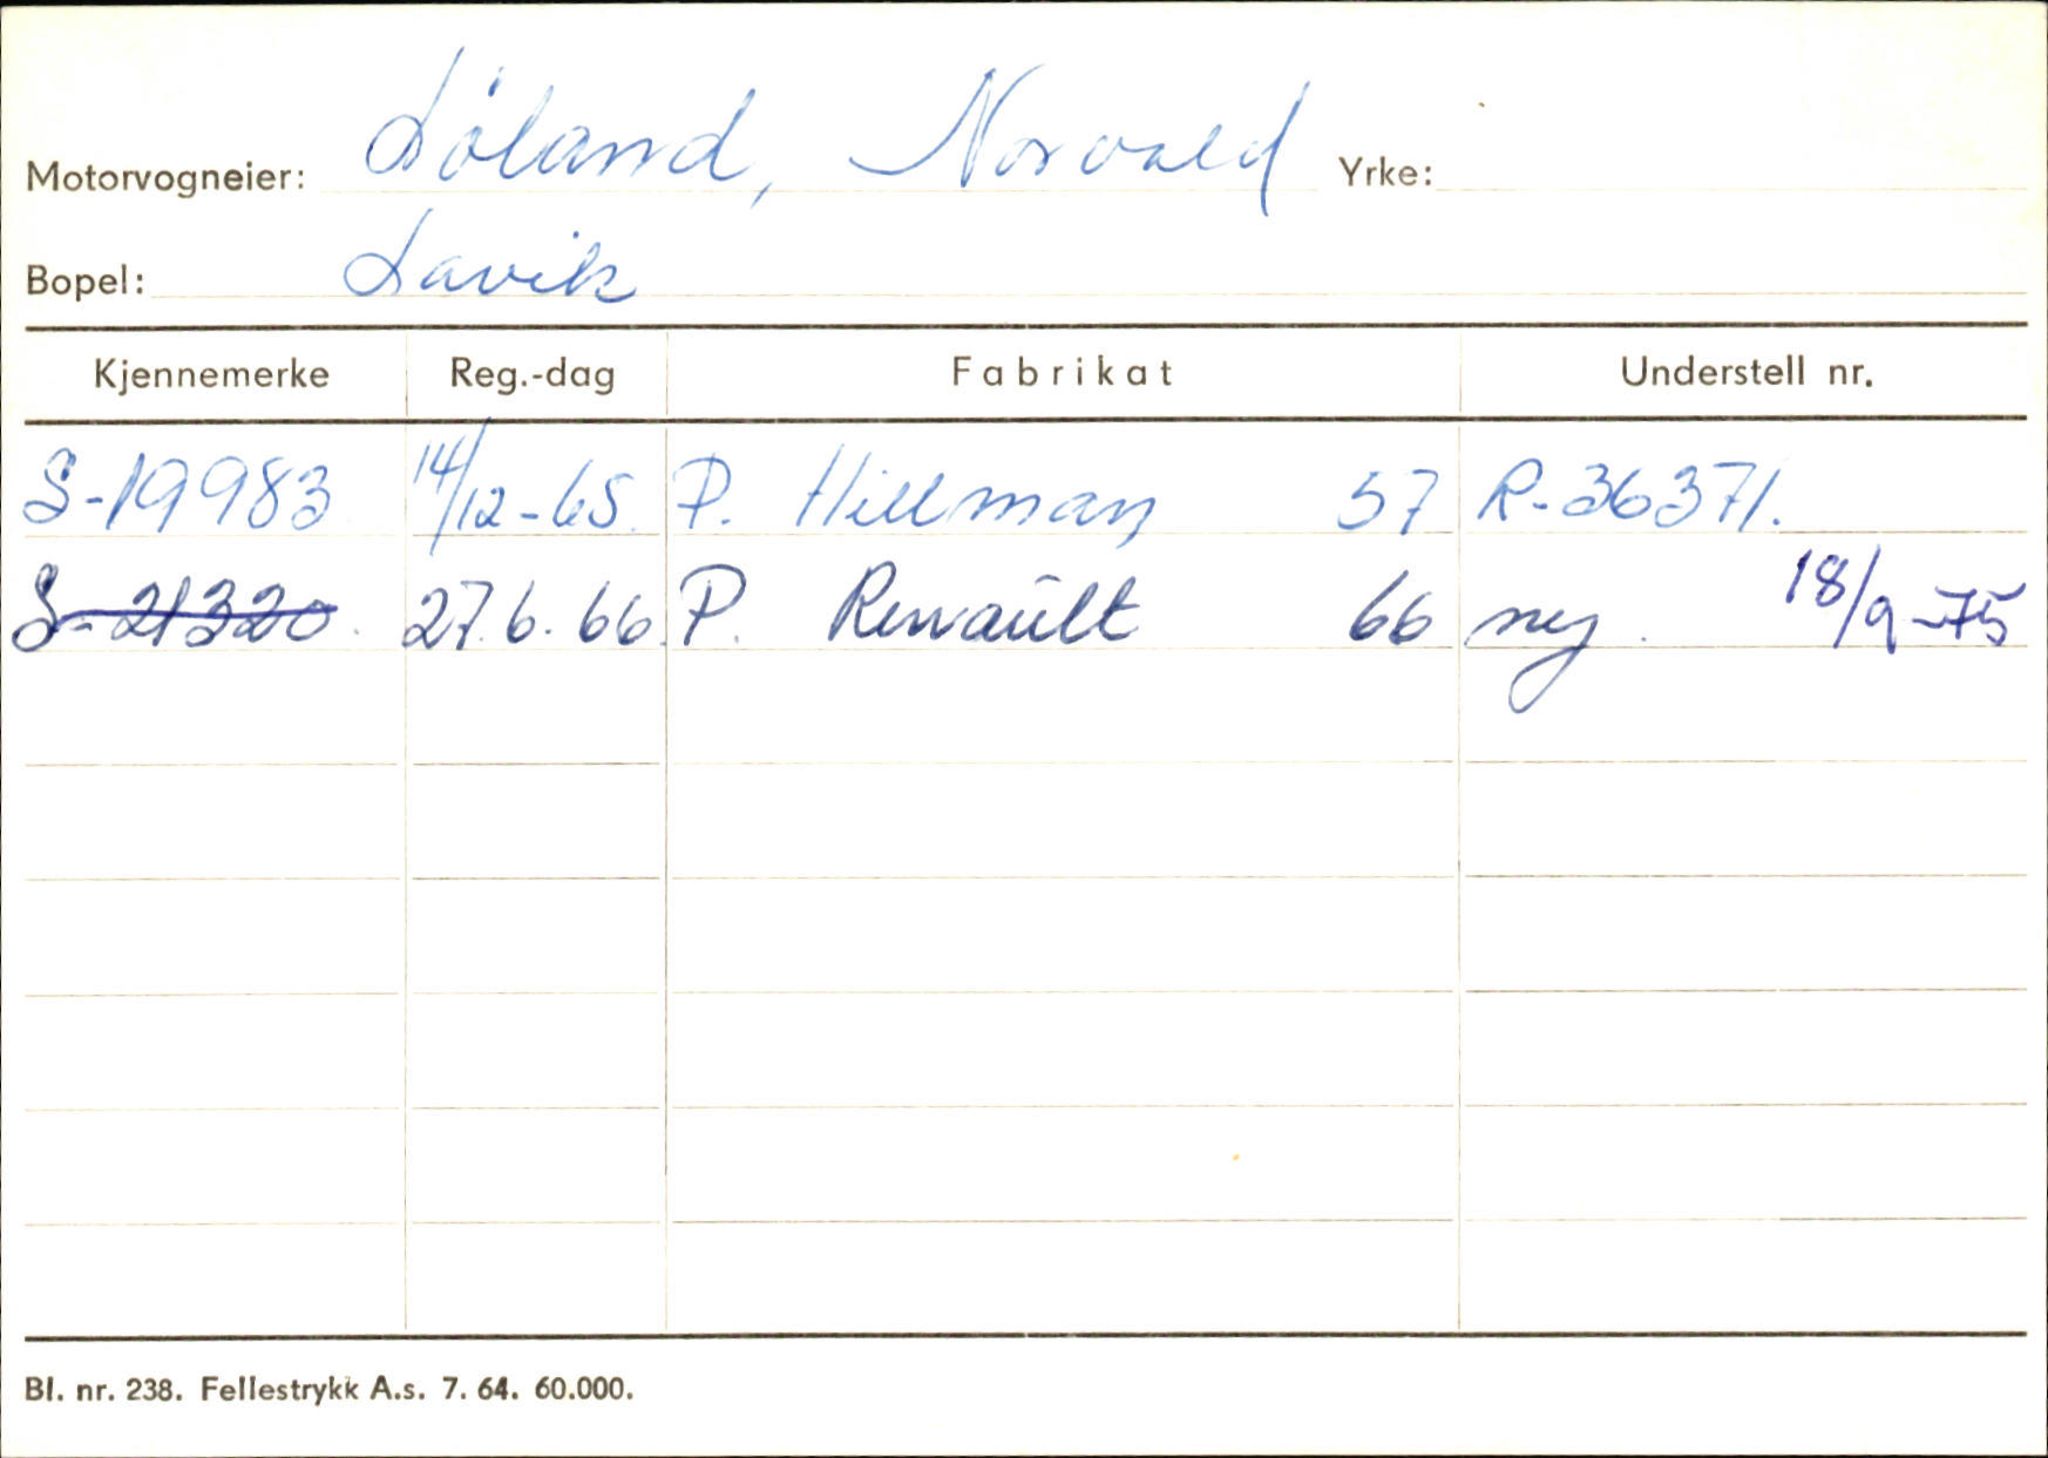 Motorvogneier: Løland, Norvald Yrke:
Bopel: Lavik
Kjennemerke Reg.-dag Fabrikat Understell nr.
S-19983 14/12-65. P. Hillman 57 R-36371.
S-21320. 27.6.66. P. Renault 66 ny. 18/9-75
Bl. nr. 238. Fellestrykk A.s. 7. 64. 60.000.